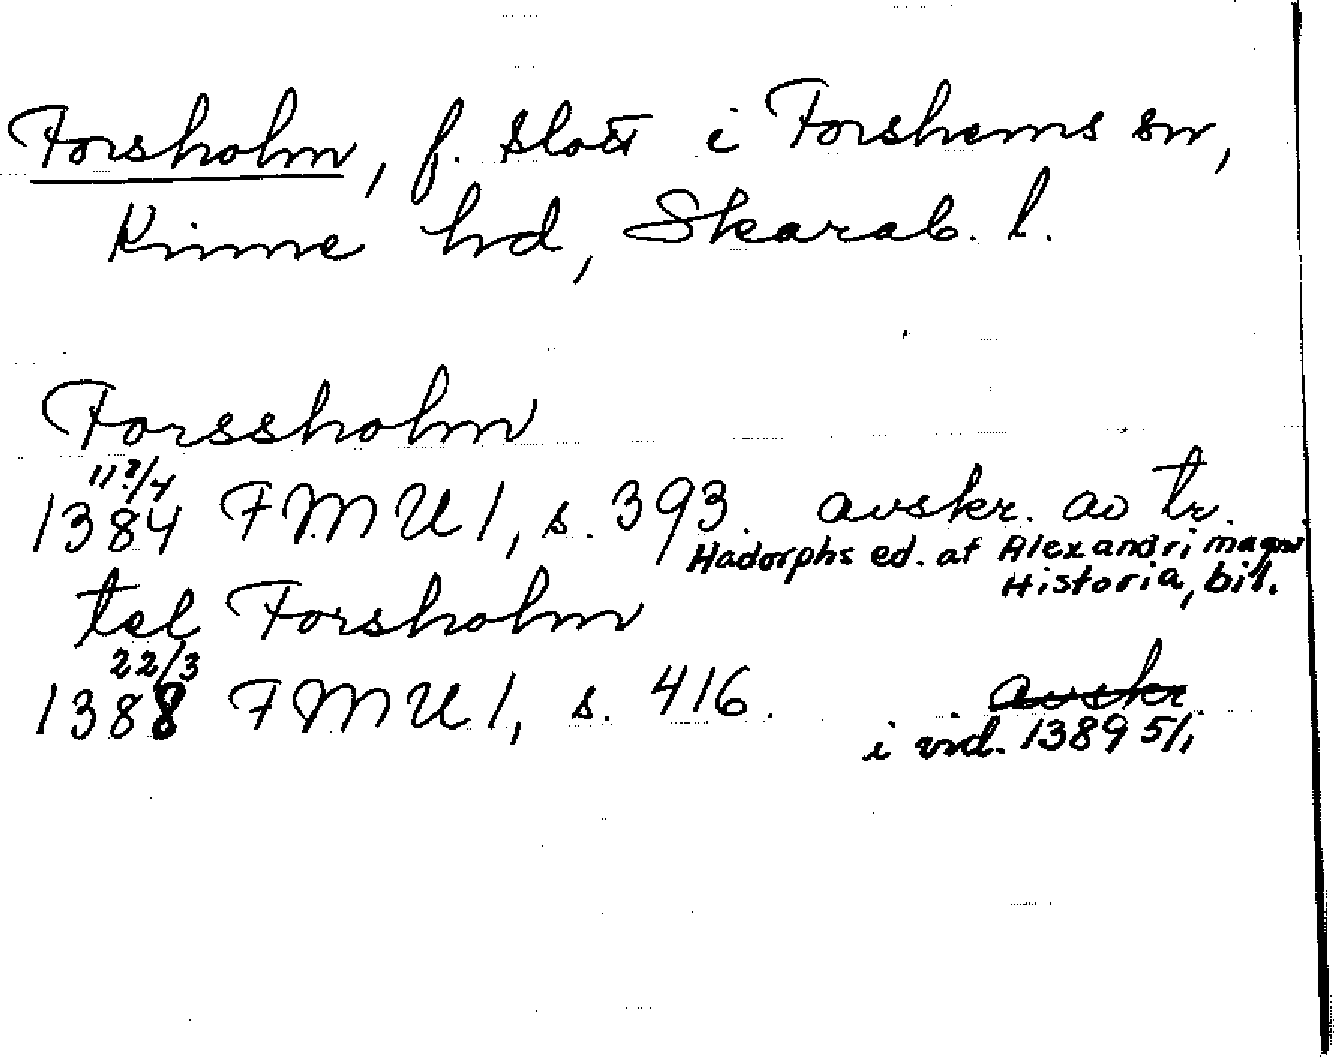 Forsholm, f. slott i Forshems sn,
Kinne hd, Skarab. l.
Forssholm
11?/4
1384 FMU 1, s. 393. avskr. av tr.
Hadorphs ed. af Alexandri magni
Historia, bil.
tel Forsholm
22/3
1388 FMU 1, s. 416. avskr
i vid. 1389 5/1